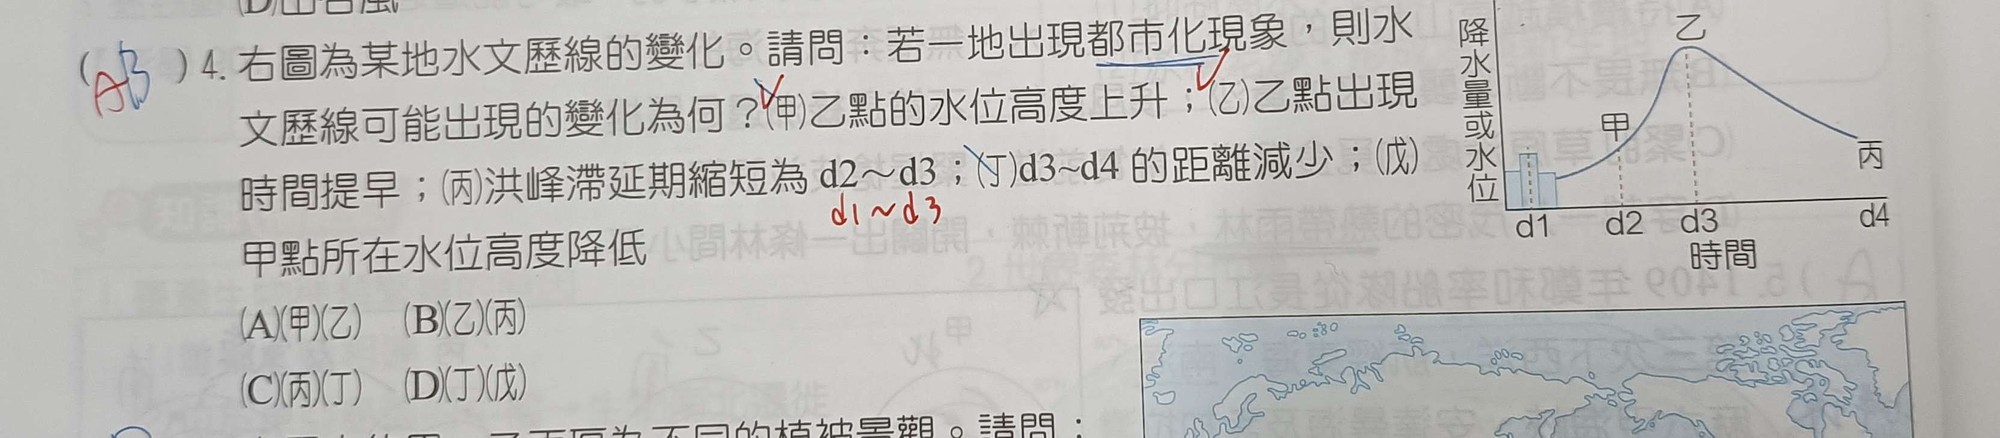 (D)出台風
( AB )4. 右圖為某地水文歷線的變化。請問：若一地出現都市化現象，則水
文歷線可能出現的變化為何？(甲)乙點的水位高度上升；(乙)乙點出現
時間提早；(丙)洪峰滯延期縮短為 d2～d3；(丁)d3~d4 的距離減少；(戊)
d1~d3
甲點所在水位高度降低
(A)(甲)(乙) (B)(乙)(丙)
(C)(丙)(丁) (D)(丁)(戊)
降水量或水位
乙
甲
丙
d1 d2 d3 d4
時間